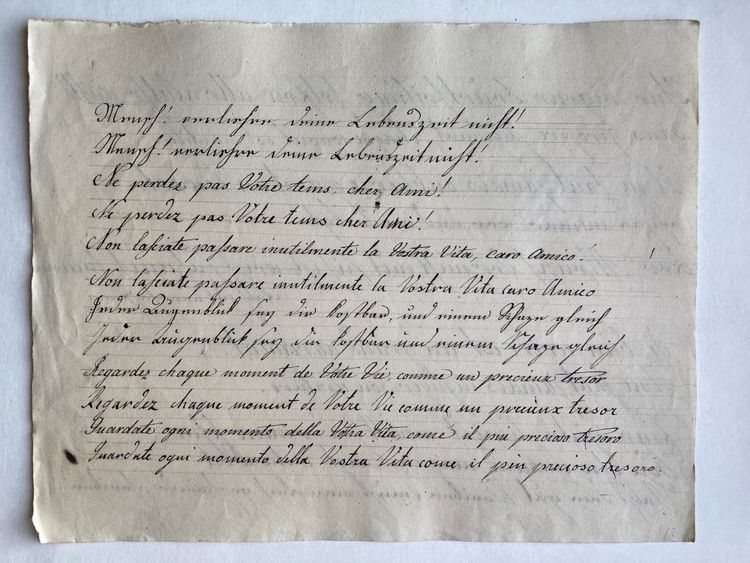 Mensch! verliehre deine Lebenszeit nicht!
Mensch! verliehre deine Lebenszeit nicht!
Ne perdez pas Votre tems cher Ami!
Ne perdez pas Votre tems cher Ami!
Non lasciate passare inutilmente la Vostra Vita, caro Amico! !
Non lasciate passare inutilmente la Vostra Vita caro Amico
Jeder Augenblick sey dir kostbar, und einem Schaze gleich
Jeder Augenblick sey dir kostbar und einem Schaze gleich
Regardez chaque moment de Vôtre Vie, comme un precieux tresor
Regardez chaque moment de Votre Vie comme un precieux tresor
Guardate ogni momento della Vostra Vita, come il piu precioso tresoro
Guardate ogni momento della Vostra Vita come il più precioso tresoro.